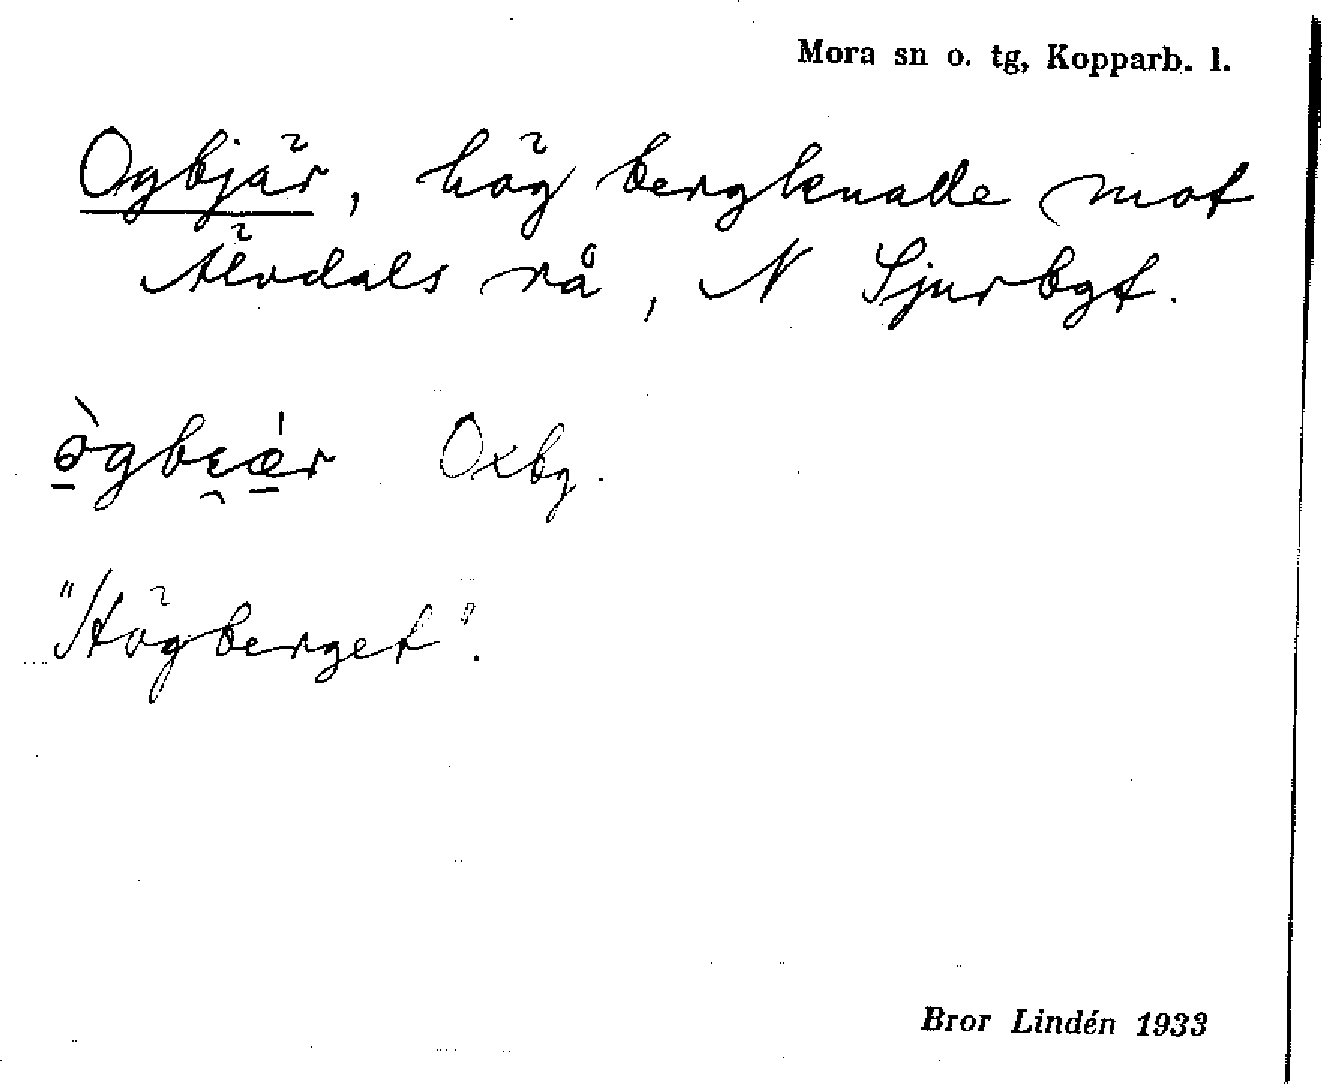 Mora sn o. tg, Kopparb. l.
Ogbjär, hög bergknalle mot
Älvdals rå, N Sjurbgt.
Oxbg.
"Högberget".
Bror Lindén 1933